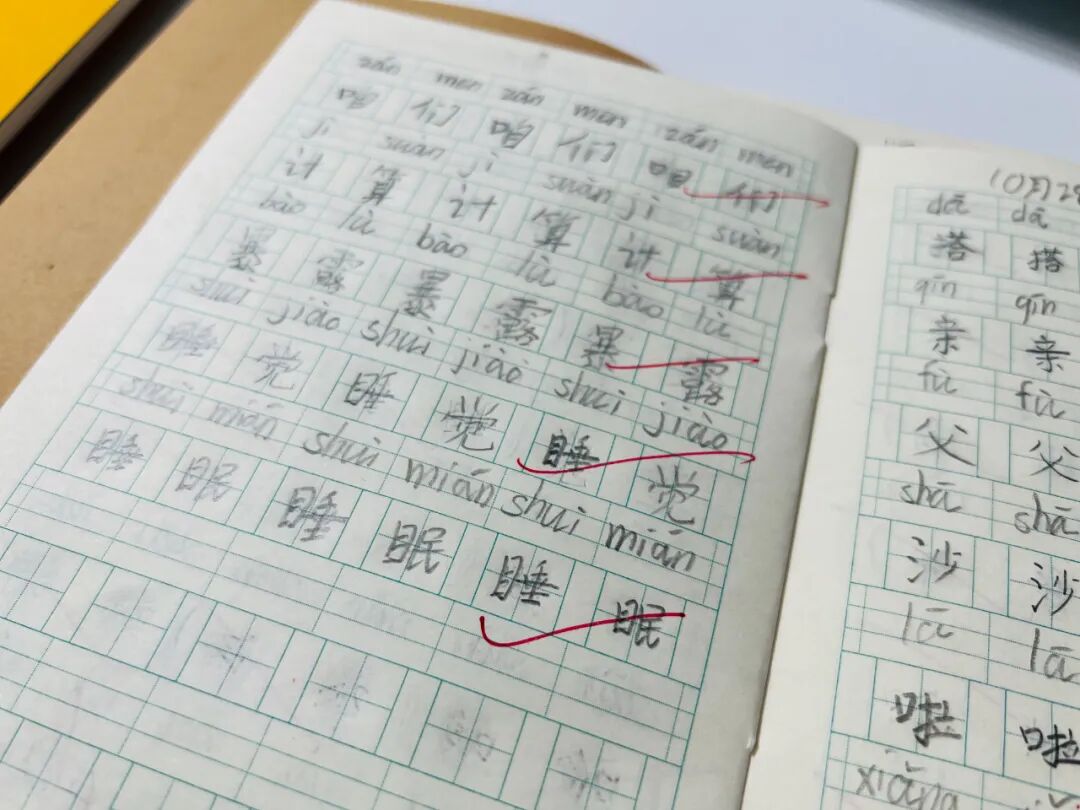 zán men zán men zán men
咱 们 咱 们 咱 们
jì suàn jì suàn jì suàn
计 算 计 算 计 算
bào lù bào lù bào lù
暴 露 暴 露 暴 露
shuì jiào shuì jiào shuì jiào
睡 觉 睡 觉 睡 觉
shuì mián shuì mián shuì mián
睡 眠 睡 眠 睡 眠
10月2
dā dā
搭 搭
qīn qīn
亲 亲
fù fù
父 父
shā shā
沙 沙
lā lā
啦 啦